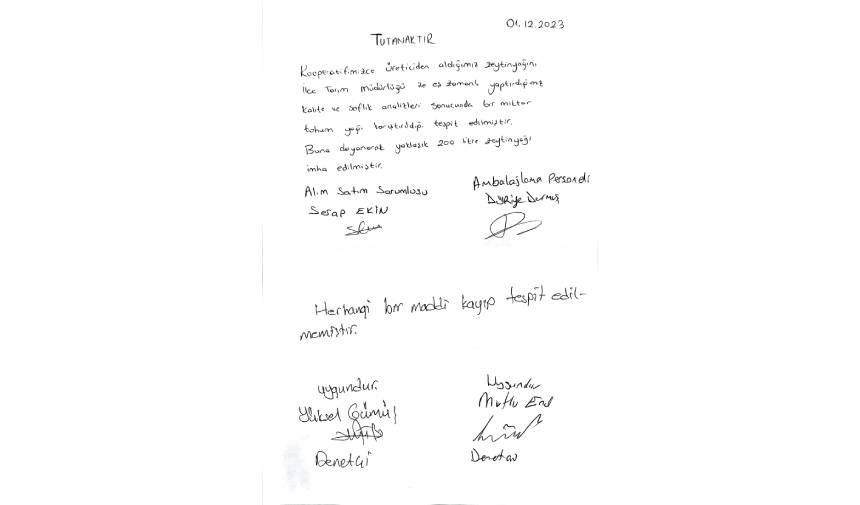 01.12.2023
TUTANAKTIR
Kooperatifimizce üreticiden aldığımız zeytinyağını
İlçe Tarım Müdürlüğü ile eş zamanlı yaptırdığımız
kalite ve saflık analizleri sonucunda bir miktar
tohum yağı karıştırıldığı tespit edilmiştir.
Buna dayanarak yaklaşık 200 litre zeytinyağı
imha edilmiştir.
Alım Satım Sorumlusu
Serap EKİN
Ambalajlama Personeli
Düriye Durmuş
Herhangi bir maddi kayıp tespit edil-
memiştir.
uygundur.
Yüksel Gümüş
Denetçi
Uygundur
Mutlu
Denetçi